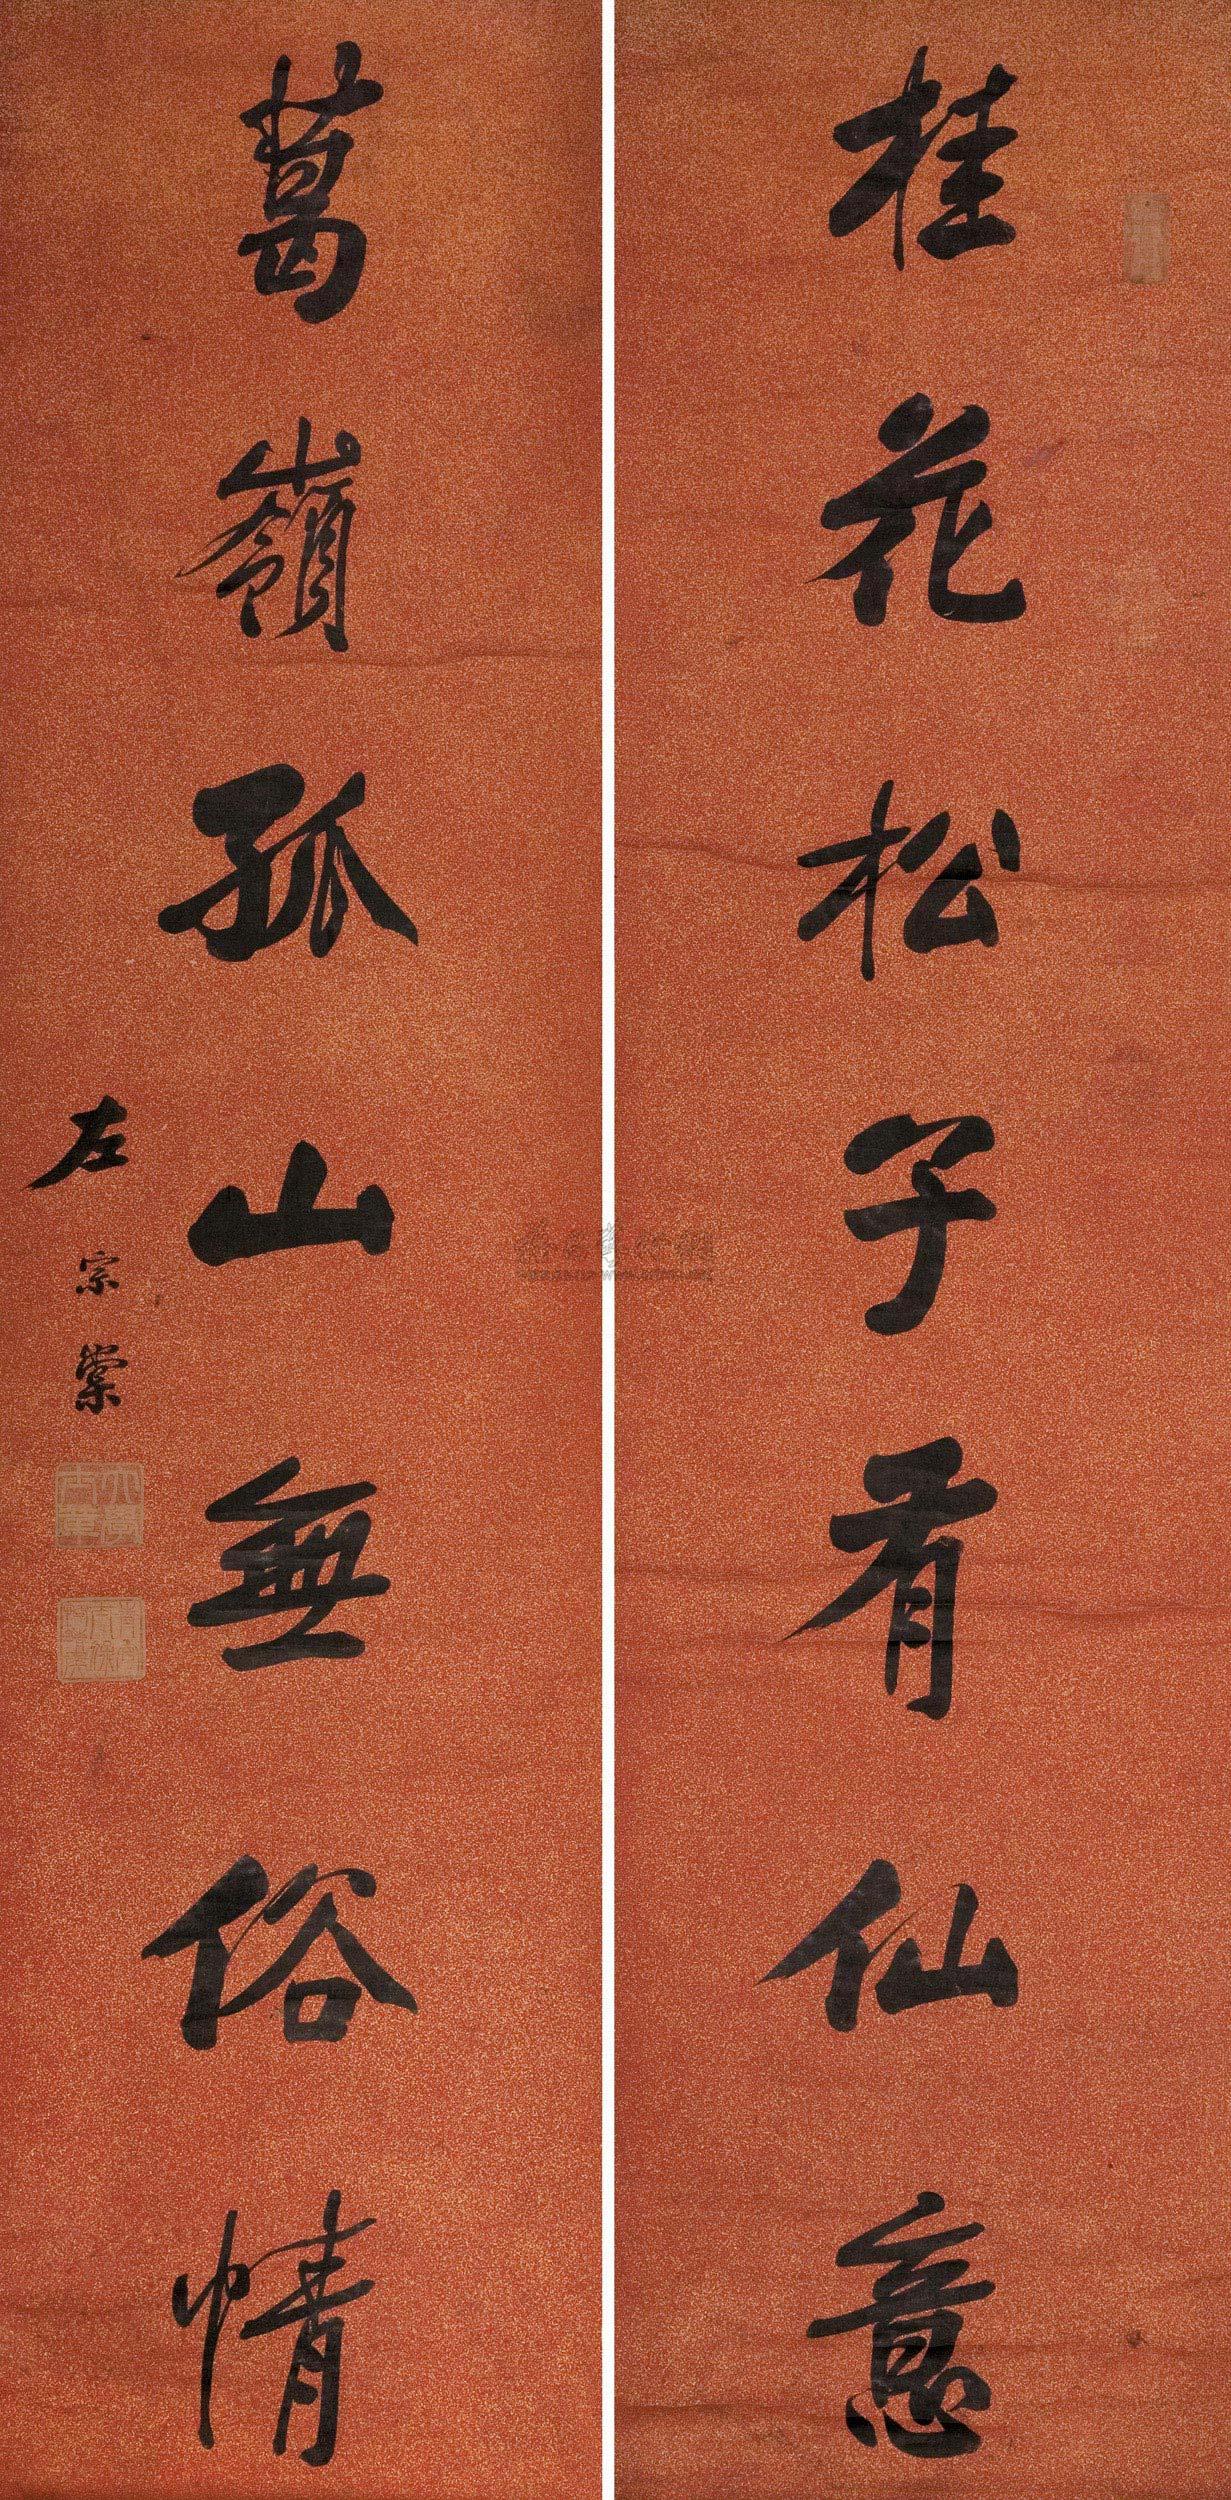 桂花松子有仙意
葛嶺孤山無俗情
左宗棠